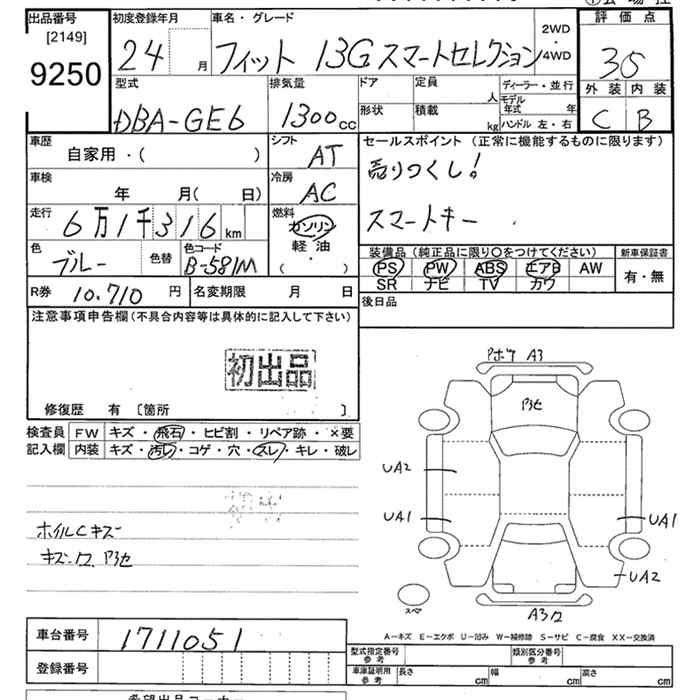 出品番号 初度登録年月 車名・グレード 2WD 評価点
[2149] 24 月 フィット 13G スマートセレクション ・4WD 35
9250 外装 内装
型式 排気量 ドア 定員 人 ディーラー・並行
モデル年式 年
DBA-GE6 1300cc 形状 積載 kg ハンドル 左・右 C B
車歴 シフト セールスポイント (正常に機能するものに限ります)
自家用・( ) AT 売りつくし!
車検 冷房
年 月( 日) AC
走行 燃料 スマートキー
6万1千316km ガソリン
色 色替 色コード 軽油 装備品 (純正品に限り〇をつけてください) 新車保証書
ブルー B-581M ( ・ ) PS PW ABS エアB AW 有・無
SR ナビ TV カワ
R券 10.710 円 名変期限 月 日 後日品
注意事項申告欄(不具合内容等は具体的に記入して下さい)
初出品
修復歴 有 [箇所 ]
検査員 FW キズ・飛石・ヒビ割・リペア跡・×要
記入欄 内装 キズ・汚レ・コゲ・穴・スレ・キレ・破レ
A3
UA2
UA1 UA1
UA2
スペア
ホイルCキズ
車台番号 1711051
登録番号
A-キズ E-エクボ U-凹み W-補修跡 S-サビ C-腐食 XX-交換済
型式指定番号 参考 類別区分番号 参考
車庫証明用 参考 長さ cm 幅 cm 高さ cm
希望出品コーナー